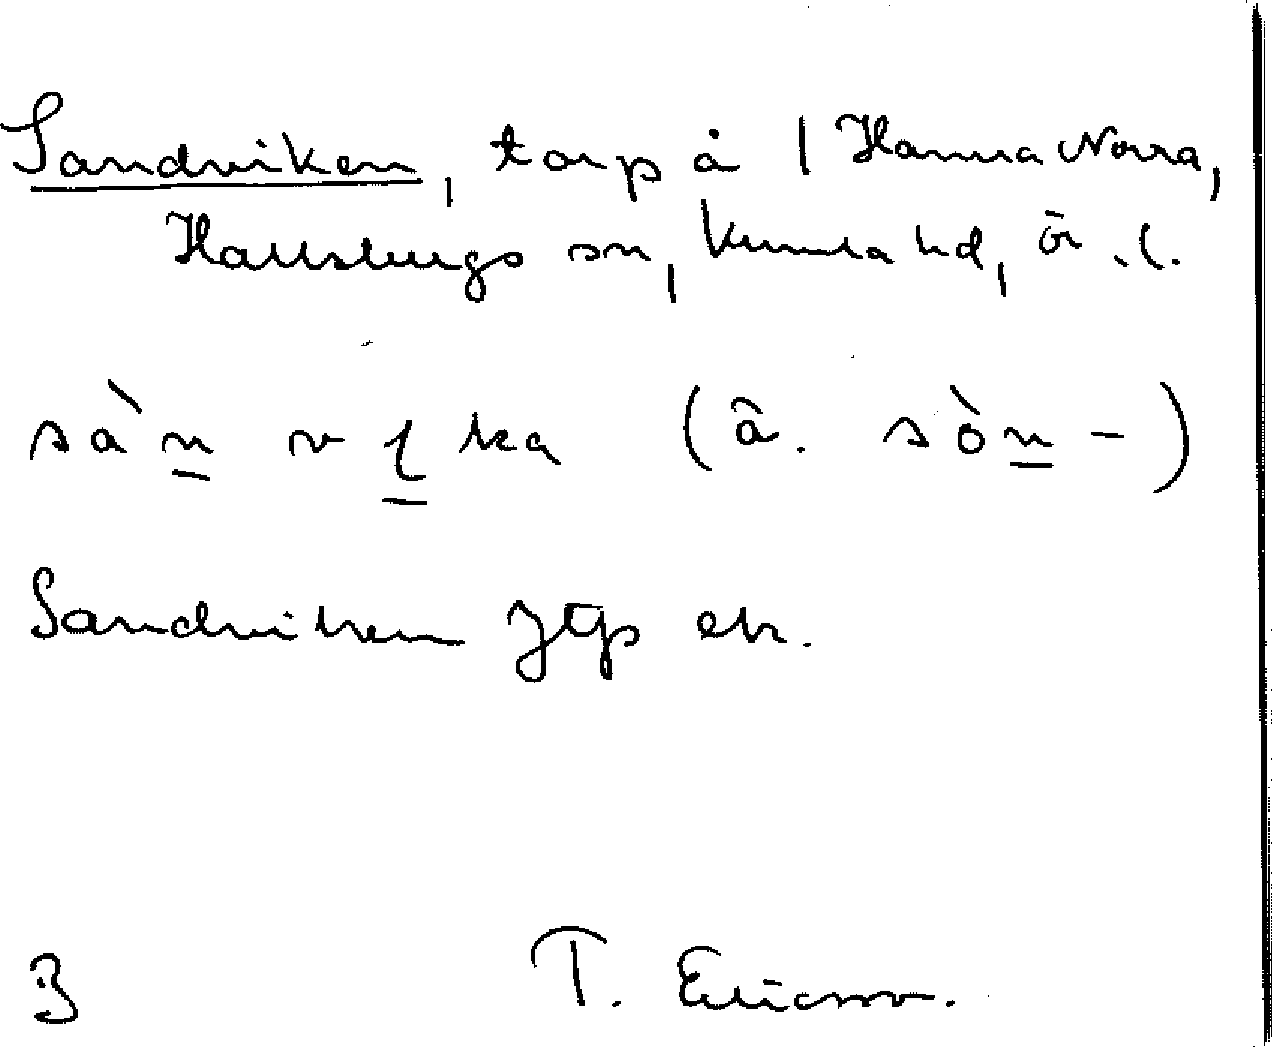 Sandviken, torp å 1 Hamra Norra,
Hallsbergs sn, Kumla hd, ör. l.
sàn vi ka (ä. sòn-)
Sandviken JGp ek.
3 T. Ericsson.